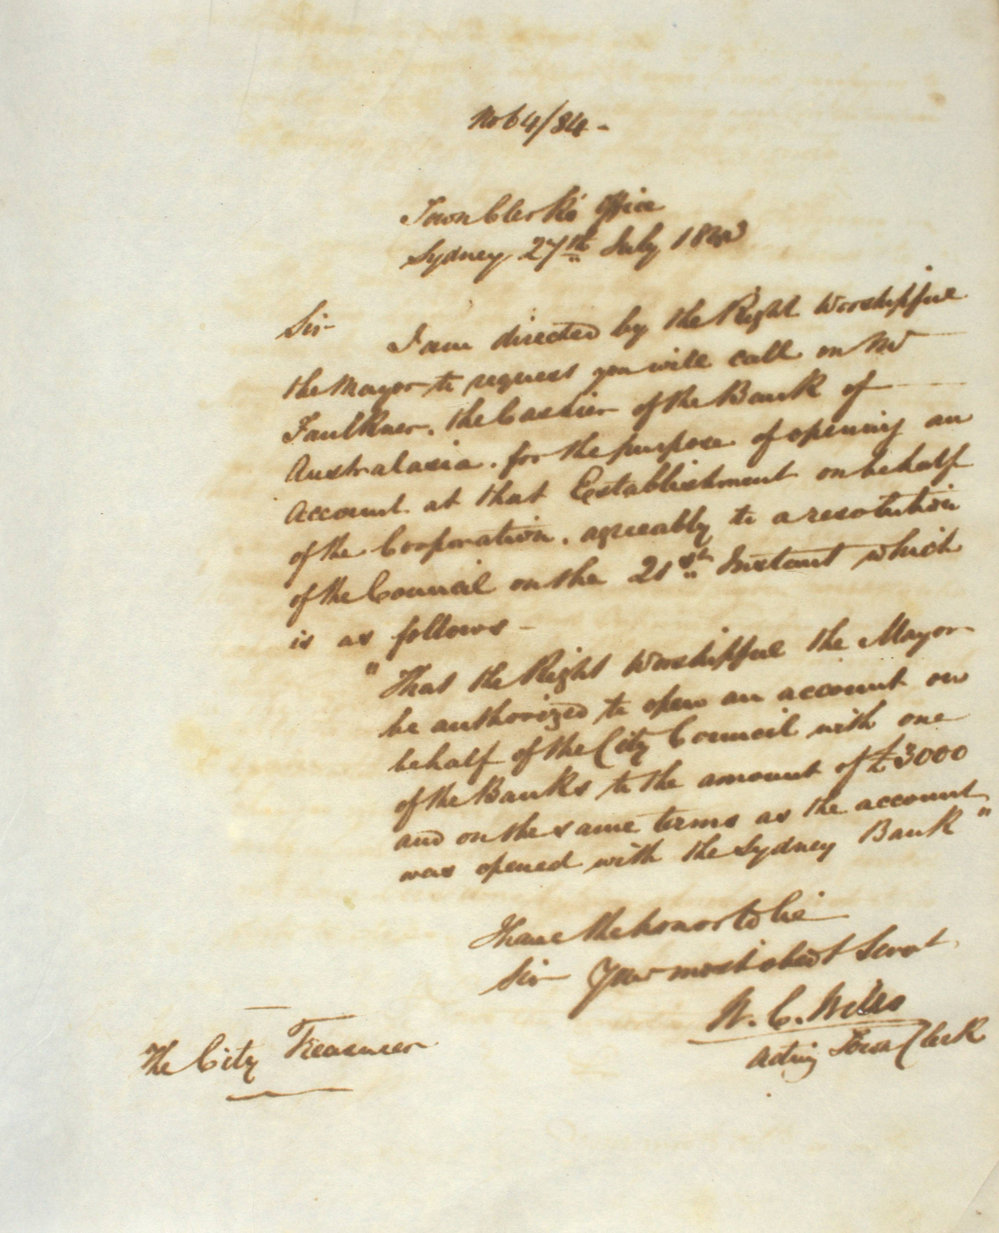 No 64/84 -
Town Clerk's Office
Sydney 27th July 1843
Sir
I am directed by the Right Worshipful
the Mayor to request you will call on Mr
Faulkner, the Cashier of the Bank of
Australasia, for the purpose of opening an
account at that Establishment on behalf
of the Corporation, agreeably to a resolution
of the Council on the 21st Instant which
is as follows -
"That the Right Worshipful the Mayor
be authorized to open an account on
behalf of the City Council with one
of the Banks to the amount of £3000
and on the same terms as the account
was opened with the Sydney Bank"
I have the honor to be
Sir Your most obedt Servt
W. C. Wills
Acting Town Clerk
The City Treasurer